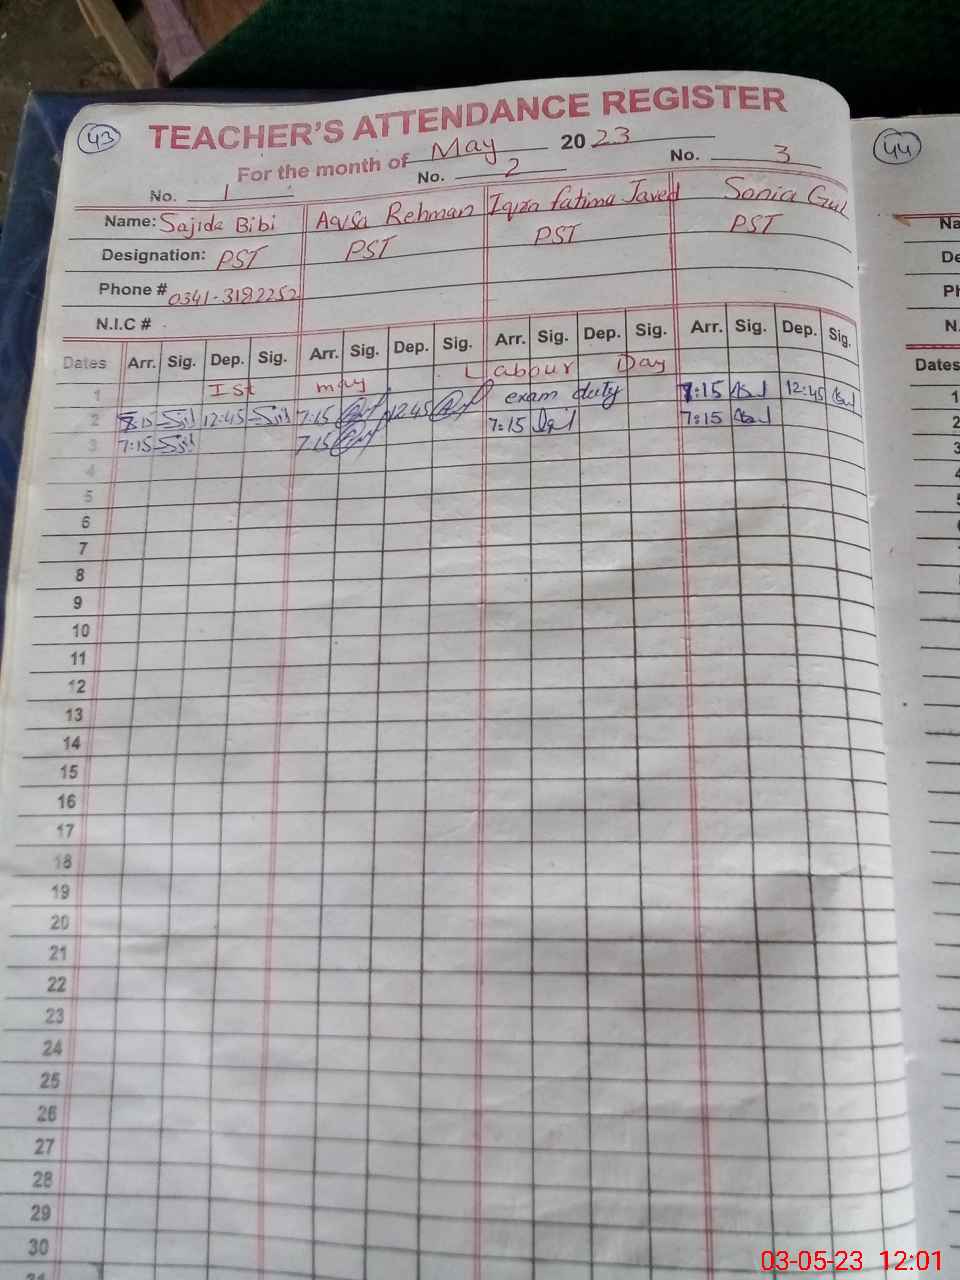 43
TEACHER'S ATTENDANCE REGISTER
44
For the month of May 2023
No. 1 No. 2 No. 3
Name: Sajida Bibi Aqsa Rehman Iqra Fatima Javed Sonia Gul
Designation: PST PST PST PST
Phone # 0341-3182252
N.I.C #
Dates Arr. Sig. Dep. Sig. Arr. Sig. Dep. Sig. Arr. Sig. Dep. Sig. Arr. Sig. Dep. Sig.
1 Ist may Labour Day
2 8:15 12:45 7:15 12:45 exam duty 7:15 12:45
3 7:15 7:15 7:15 7:15
4
5
6
7
8
9
10
11
12
13
14
15
16
17
18
19
20
21
22
23
24
25
26
27
28
29
30
Na
De
Ph
N.
Dates
1
2
3
4
5
6
03-05-23 12:01